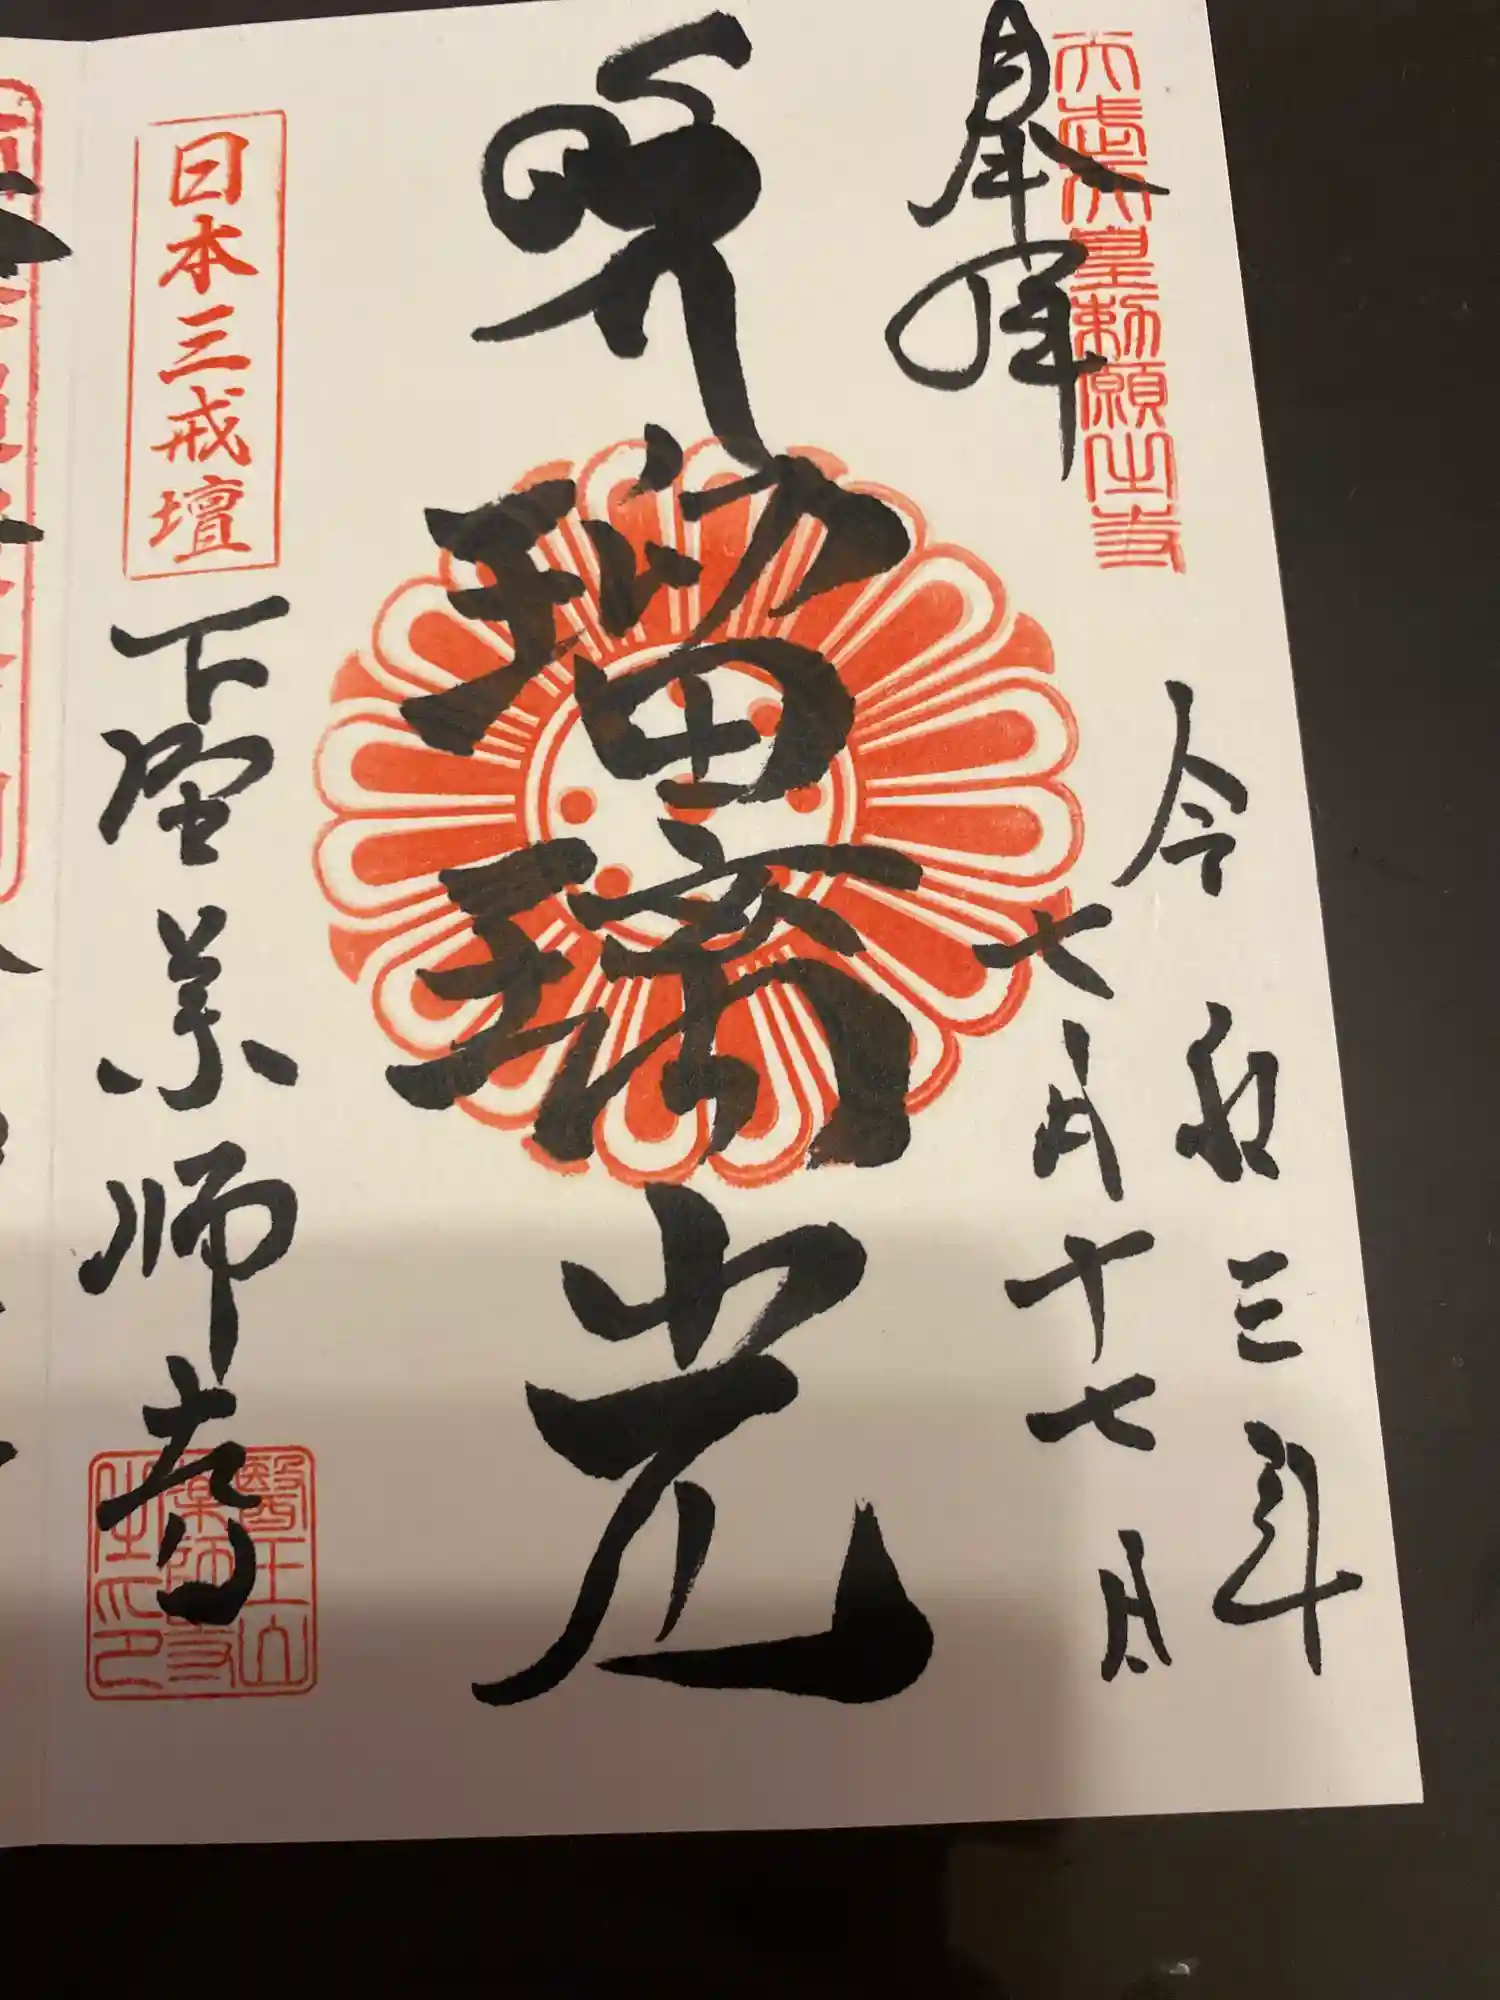 天武天皇勅願之寺
奉拝
令和三年
七月十七日
瑠璃光
日本三戒壇
下野薬師寺
醫王山
薬師寺
之印